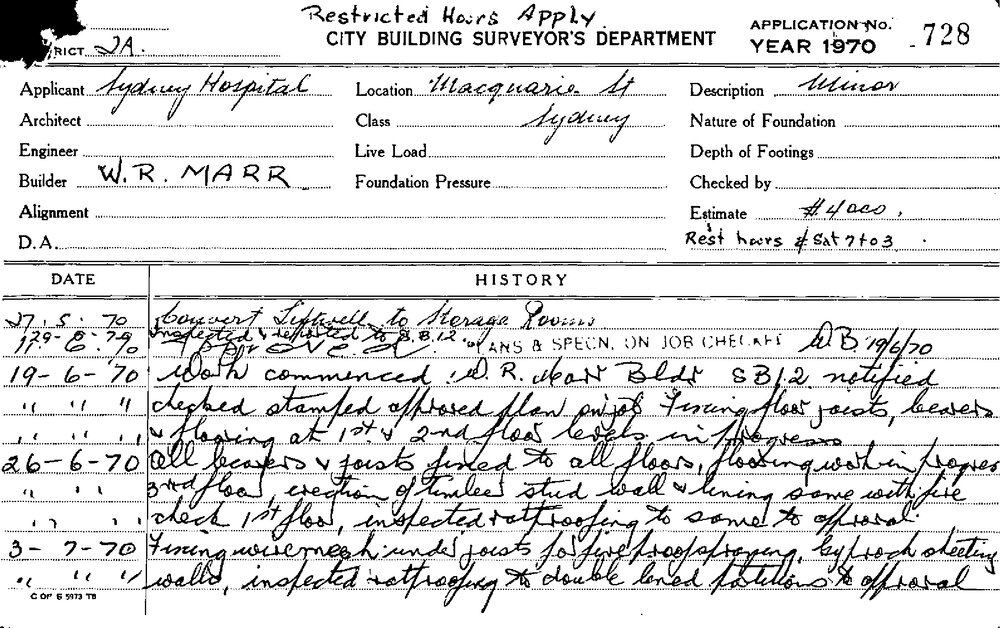 Restricted Hours Apply
RICT 2A.
CITY BUILDING SURVEYOR'S DEPARTMENT
APPLICATION No. 728
YEAR 1970
Applicant Sydney Hospital
Location Macquarie St
Description Minor
Architect
Class Sydney
Nature of Foundation
Engineer
Live Load
Depth of Footings
Builder W. R. MARR
Foundation Pressure
Checked by
Alignment
Estimate $4000.
D.A.
Rest hours & Sat 7 to 3
DATE HISTORY
27. 5. 70 Convert Liftwell to Storage Rooms
Inspected & reported to S.B.12
PLANS & SPECN. ON JOB CHECKED 19/6/70
19-6-'70 Work commenced W. R. Marr Bldr SB12 notified
" " " checked stamped approved plan on job Fixing floor joists, bearers
" " " & flooring at 1st & 2nd floor levels in progress
26-6-70 All bearers & joists fixed to all floors, flooring work in progress
" " " 3rd floor, erection of timber stud wall & lining same with fire
" " check 1st floor, inspected ratproofing to same to approval.
3-7-70 Fixing wire mesh under joists for fireproof spraying, gyprock sheeting
" " " walls, inspected ratproofing to double lined partitions to approval
C OF S 5973 TB